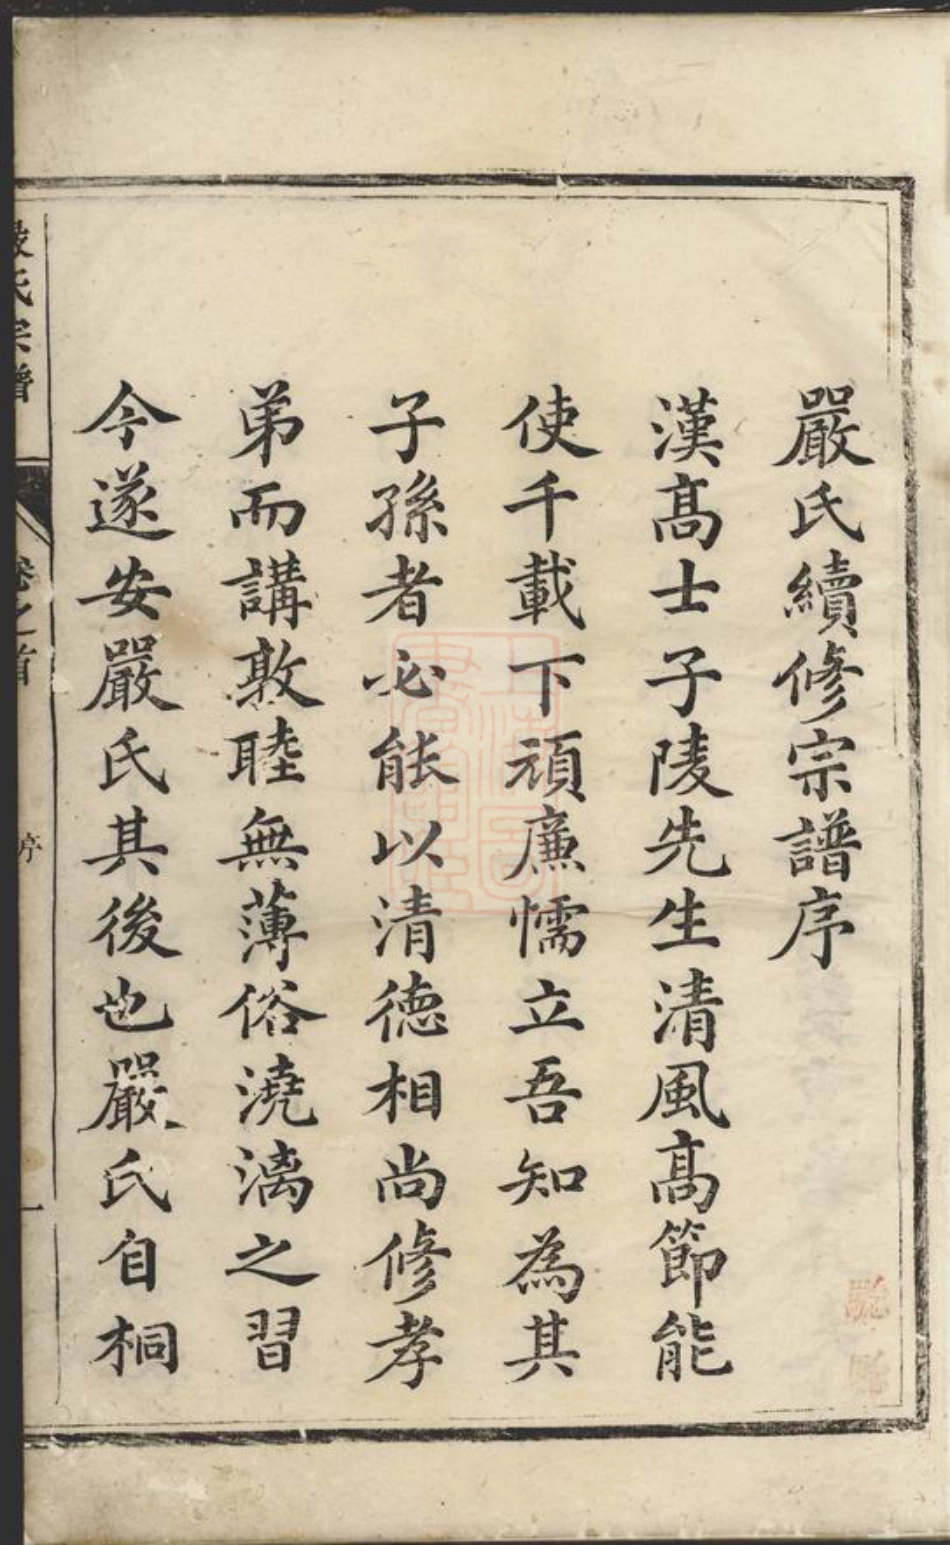 嚴氏續修宗譜序
漢髙士子陵先生清風髙節能
使千載下頑廉懦立吾知為其
子孫者必能以清德相尚修孝
弟而講敦睦無薄俗澆漓之習
今遂安嚴氏其後也嚴氏自桐
嚴氏宗譜
卷之首
序
一